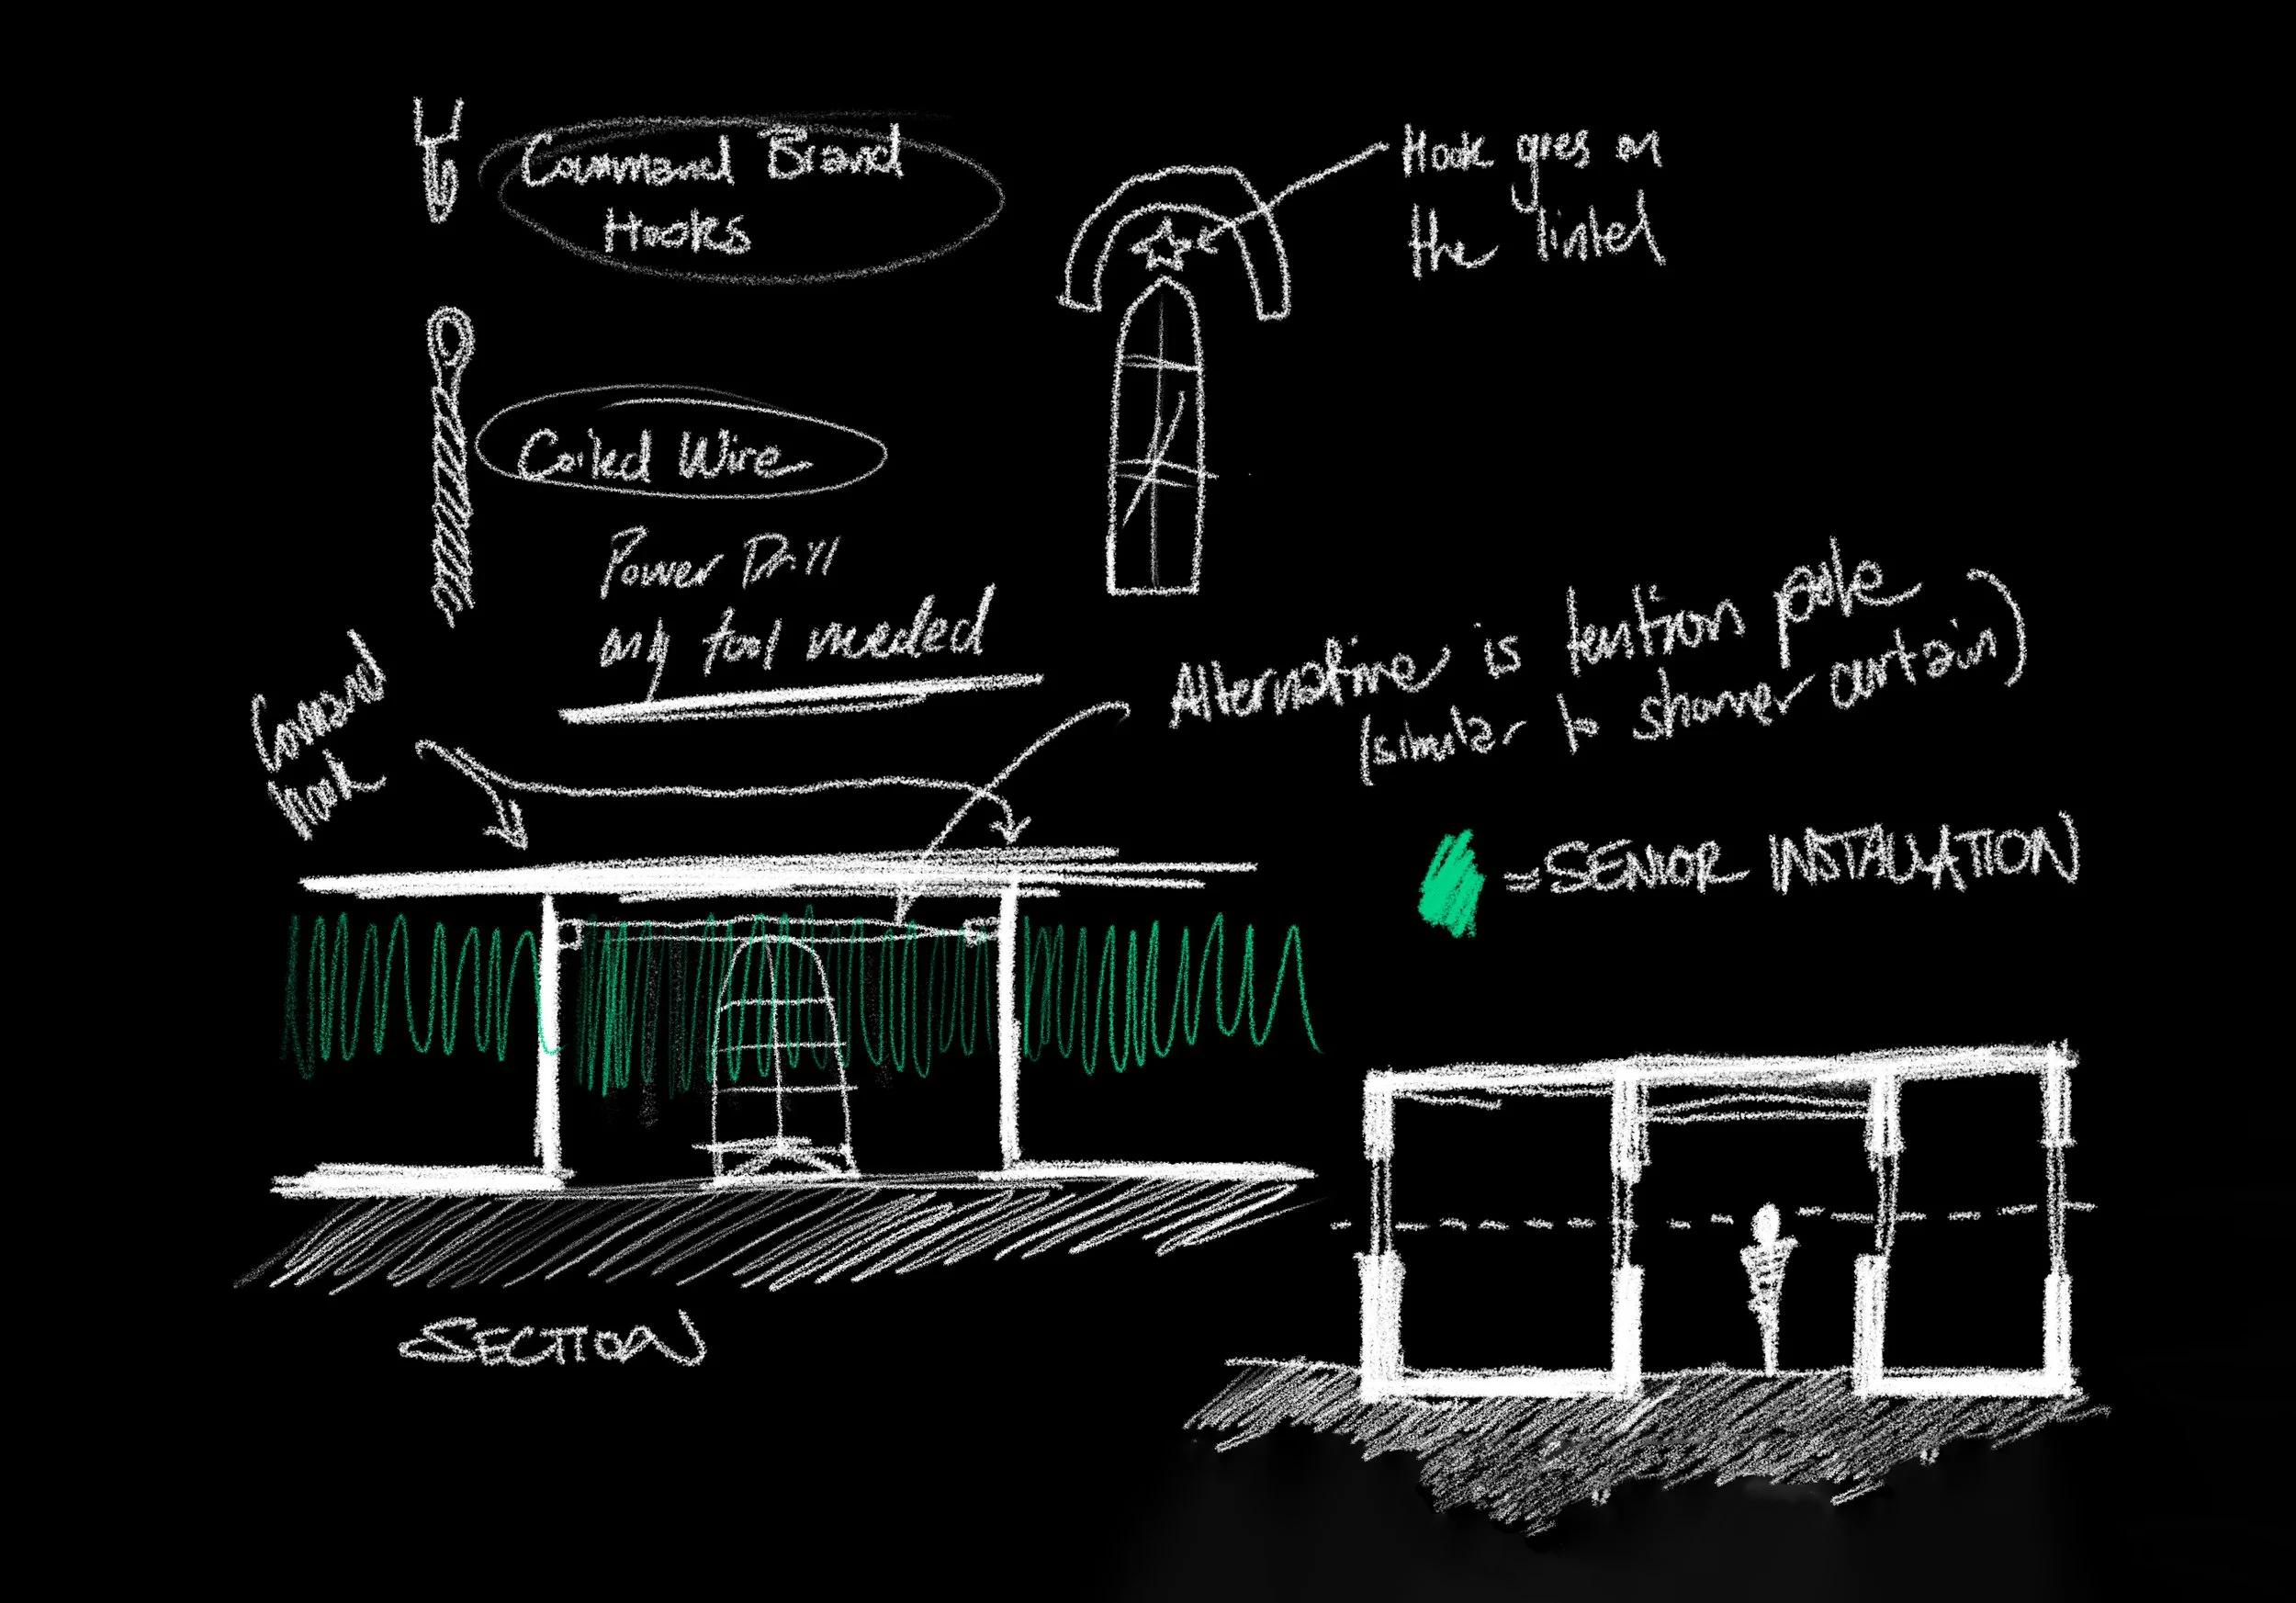 Command Brand
Hooks
Hook goes on
the lintel
Coiled Wire
Power Drill
only tool needed
Alternative is tension pole
(similar to shower curtain)
Command
hook
= SENIOR INSTALLATION
SECTION